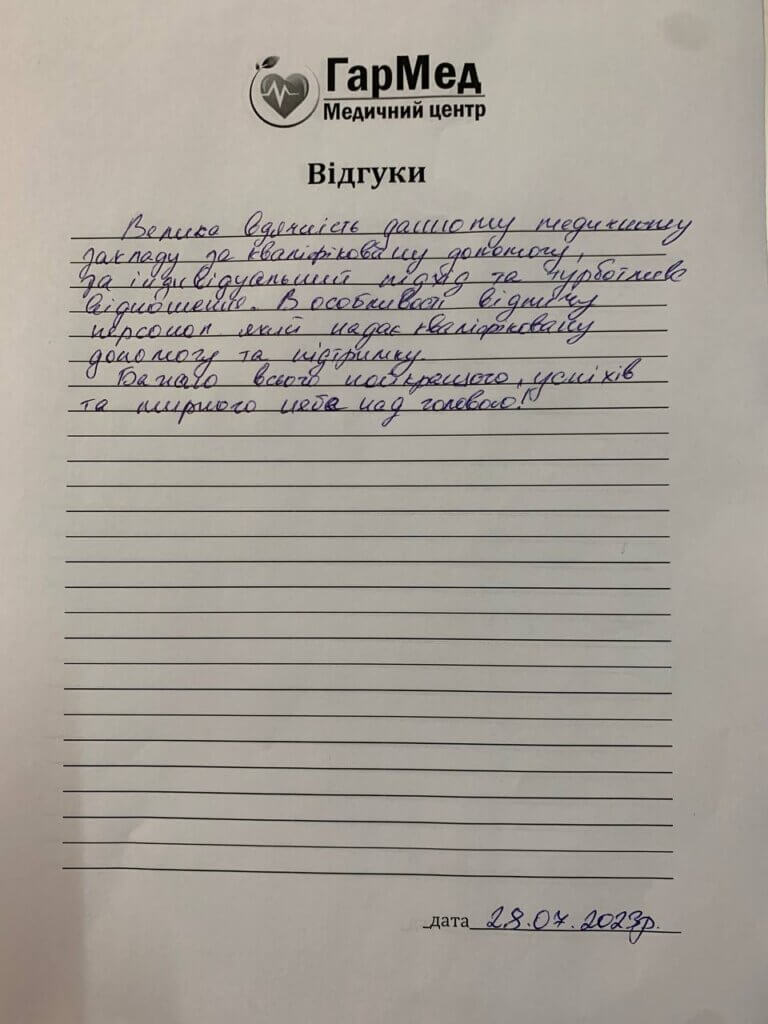 ГарМед
Медичний центр
Відгуки
Велика вдячність даному медичному
закладу за кваліфіковану допомогу,
за індивідуальний підхід та турботливе
відношення. В особливості відмічу
персонал який надає кваліфіковану
допомогу та підтримку.
Бажаю всього найкращого, успіхів
та мирного неба над головою!
дата 28.07.2023р.